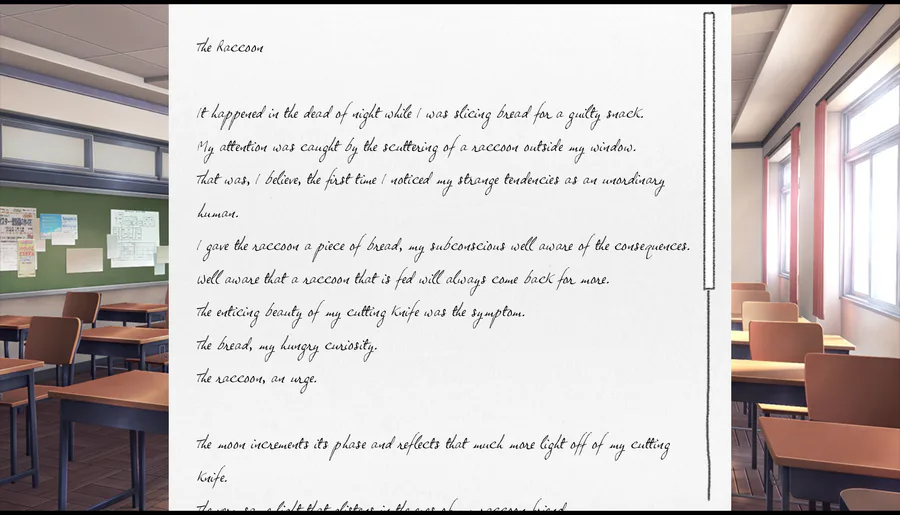 The Raccoon
It happened in the dead of night while I was slicing bread for a guilty snack.
My attention was caught by the scuttering of a raccoon outside my window.
That was, I believe, the first time I noticed my strange tendencies as an unordinary
human.
I gave the raccoon a piece of bread, my subconscious well aware of the consequences.
Well aware that a raccoon that is fed will always come back for more.
The enticing beauty of my cutting knife was the symptom.
The bread, my hungry curiosity.
The raccoon, an urge.
The moon increments its phase and reflects that much more light off of my cutting
knife.